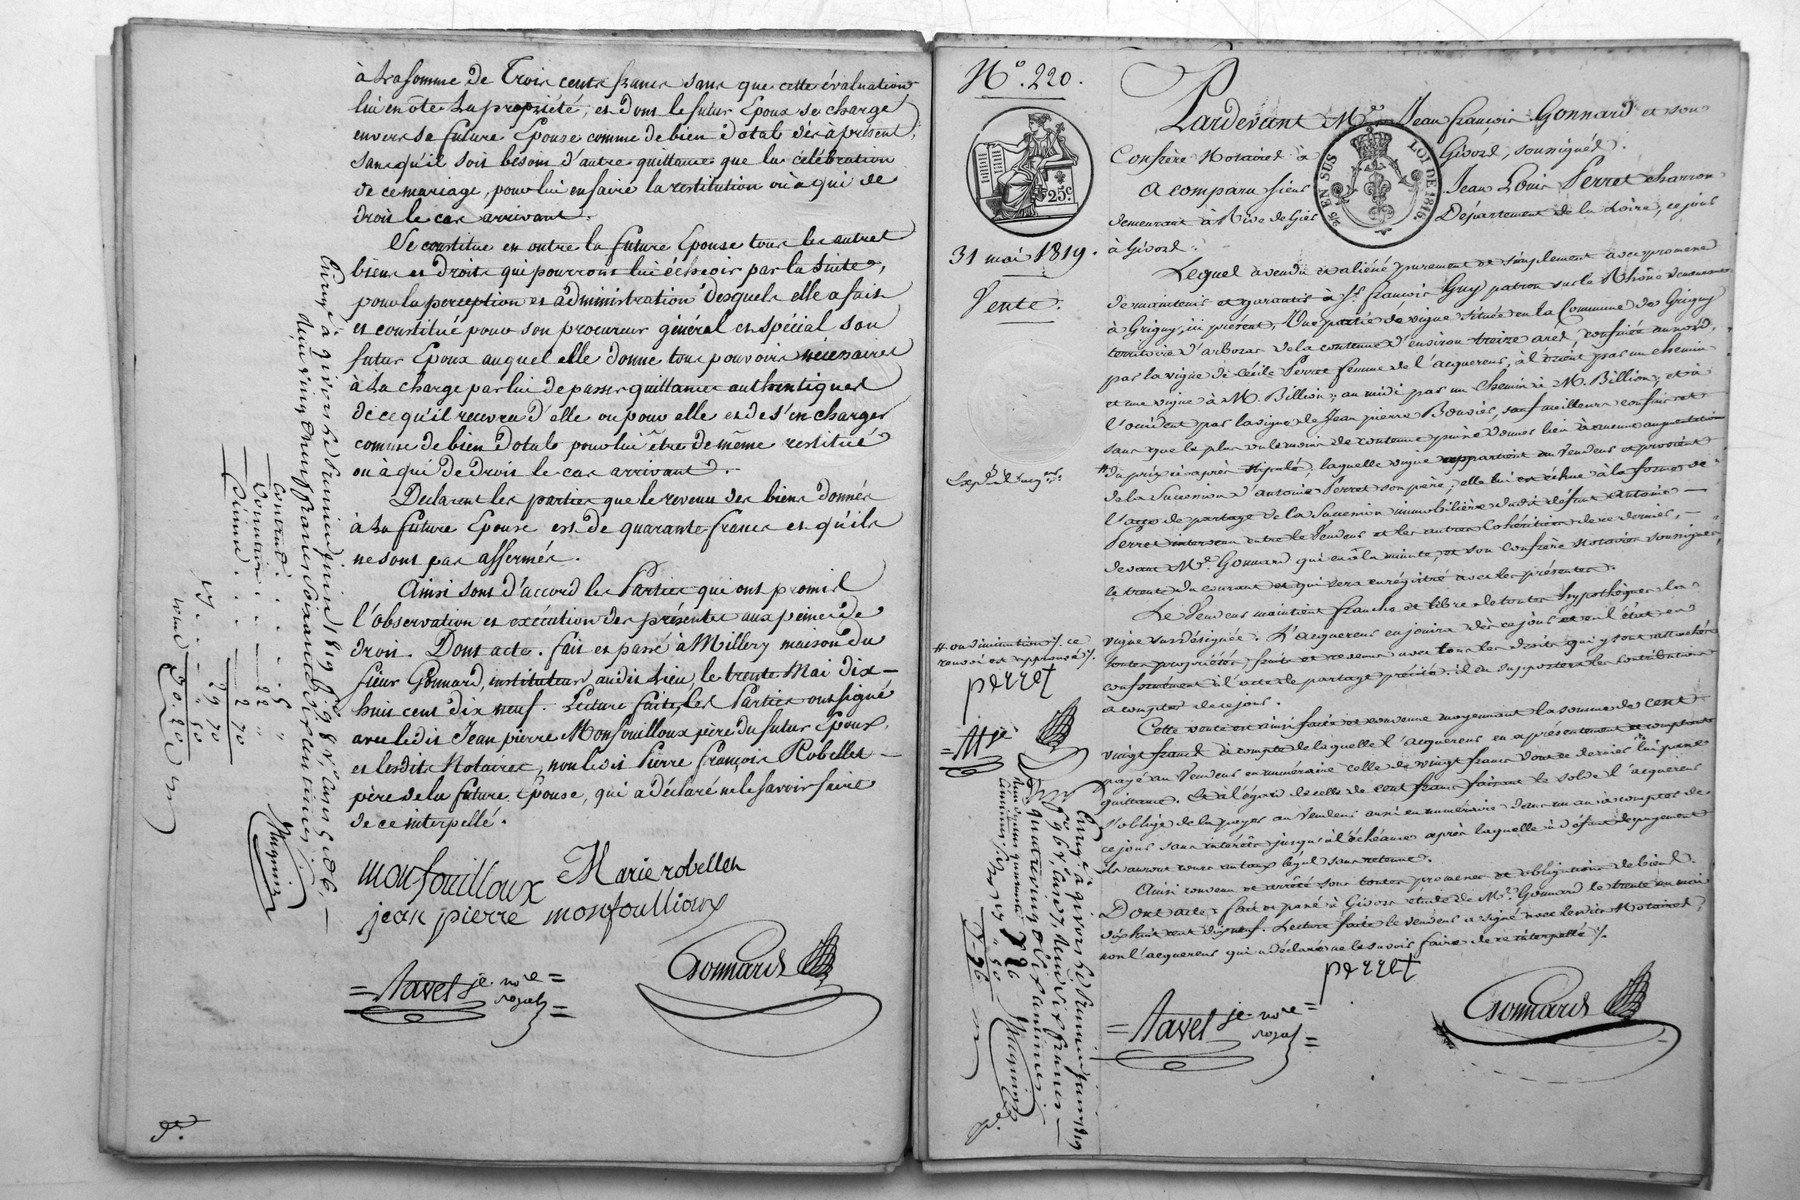 à la somme de Trois cents francs sans que cette évaluation
lui en ôte la propriété, et dont le futur Epoux se charge
envers sa future Epouse comme de bien dotal dès à présent,
sans qu'il soit besoin d'autre quittance que la célébration
de ce mariage, pour lui en faire la restitution ou à qui de
droit le cas arrivant.
Se constitue en outre la future Epouse tous les autres
biens et droits qui pourront lui échoir par la suite,
pour la perception et administration desquels elle a fait
et constitué pour son procureur général et spécial son
futur Epoux auquel elle donne tous pouvoirs nécessaires
à la charge par lui de passer quittances authentiques
de ce qu'il recevra d'elle ou pour elle et de s'en charger
comme de bien dotal pour lui être de même restitué
ou à qui de droit le cas arrivant.
Déclarent les parties que le revenu des biens donnés
à la future Epouse est de quarante francs et qu'ils
ne sont pas affermés.
Ainsi sont d'accord les Parties qui ont promis
l'observation et exécution des présentes aux peines de
droit. Dont acte. fait et passé à Millery maison du
sieur Gonnard, instituteur, audit lieu, le trente Mai dix-
huit cent dix neuf. Lecture faite, les Parties ont signé
avec ledit Jean pierre Monfouilloux père du futur Epoux,
et lesdits Notaires, non ledit Pierre François Robellet
père de la future Epouse, qui a déclaré ne le savoir faire
de ce interpellé.
monfouilloux Marie robellet
jean pierre monfoullioux
Navel je. no.re
royal
Gonnard
Enreg.é à givors le premier juin 1819
Contrat
Donation
Décime
N.º 220.
25 c.
31 mai 1819.
Vente.
# ou diminution ./. ce
renvoi est approuvé ./.
perret
Pardevant M.e Jean françois Gonnard et son
Confrère Notaires à Givors, soussignés.
25 EN SUS
LOI DE 1816.
A comparu sieur Jean Louis Perret charron
demeurant à Rive de Gier Département de la Loire, ce jour
à Givors.
Lequel a vendu et aliéné purement et simplement avec promesse
de maintenir et garantir à s.r françois Guy patron sur le Rhône demeurant
à Grigny, ici présent, Une partie de vigne située en la Commune de Grigny
territoire d'arboras de la contenue d'environ treize ares, confinée au nord,
par la vigne de Cécile Perret femme de l'acquereur, à l'orient par un chemin
et une vigne à M. Billion, au midi par un chemin à M. Billion, et à
l'occident par la vigne de Jean pierre Bouvier, sauf meilleurs confins et
sans que le plus ou le moins de contenue puisse donner lieu à aucune augmentation
# du prix ci-après stipulé, laquelle vigne appartient au Vendeur et provient
de la Succession d'antoine Perret son père; elle lui est échue à la forme de
l'acte de partage de la Succession immobilière dudit défunt antoine
Perret intervenu entre le Vendeur et les autres Cohéritiers de ce dernier,
devant M.e Gonnard qui en a la minute, et son confrère Notaires soussignés,
le trente du courant et qui sera enregistré avec les présentes.
Le Vendeur maintient franche et libre de toutes hypothèques la
vigne susdésignée. L'acquereur en jouira dès ce jour et en l'état en
toutes propriétés, fruits et revenus avec tous les droits qui y sont attachés
conformément à l'acte de partage précité. il en supportera les contributions
à compter de ce jour.
Cette vente est ainsi faite et convenue moyennant la somme de cent
vingt francs à compte de laquelle l'acquereur en a présentement et comptant
payé au Vendeur en numéraire celle de vingt francs dont ce dernier lui passe
quittance. Et à l'égard de celle de cent francs faisant le solde l'acquereur
s'oblige de la payer au Vendeur aussi en numéraire dans un an à compter de
ce jour sans intérêts jusqu'à l'échéance après laquelle à défaut de payement
ils auront cours au taux légal sans retenue.
Ainsi convenu et arrêté sous toutes promesses et obligations de biens.
Dont acte, fait et passé à Givors étude de M.e Gonnard le trente un mai
dix huit cent dix neuf. Lecture faite le vendeur a signé avec lesdits Notaires,
non l'acquereur qui a déclaré ne le savoir faire de ce interpellé ./.
perret
Navel je. no.re
royal
Gonnard